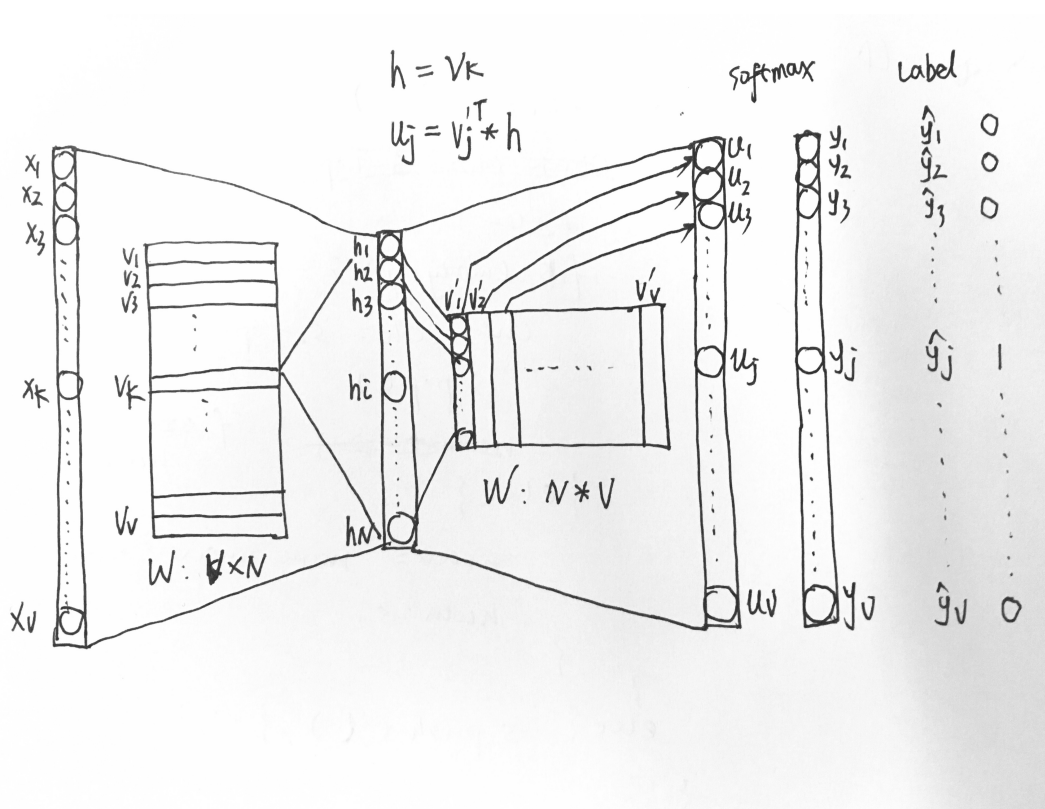 h = vk
uj = vj'T * h
softmax
Label
x1
x2
x3
xk
xv
v1
v2
v3
vk
vv
W: V×N
h1
h2
h3
hi
hN
v'1 v'2 v'v
W: N*V
u1
u2
u3
uj
uv
y1
y2
y3
yj
yv
ŷ1 0
ŷ2 0
ŷ3 0
ŷj 1
ŷv 0